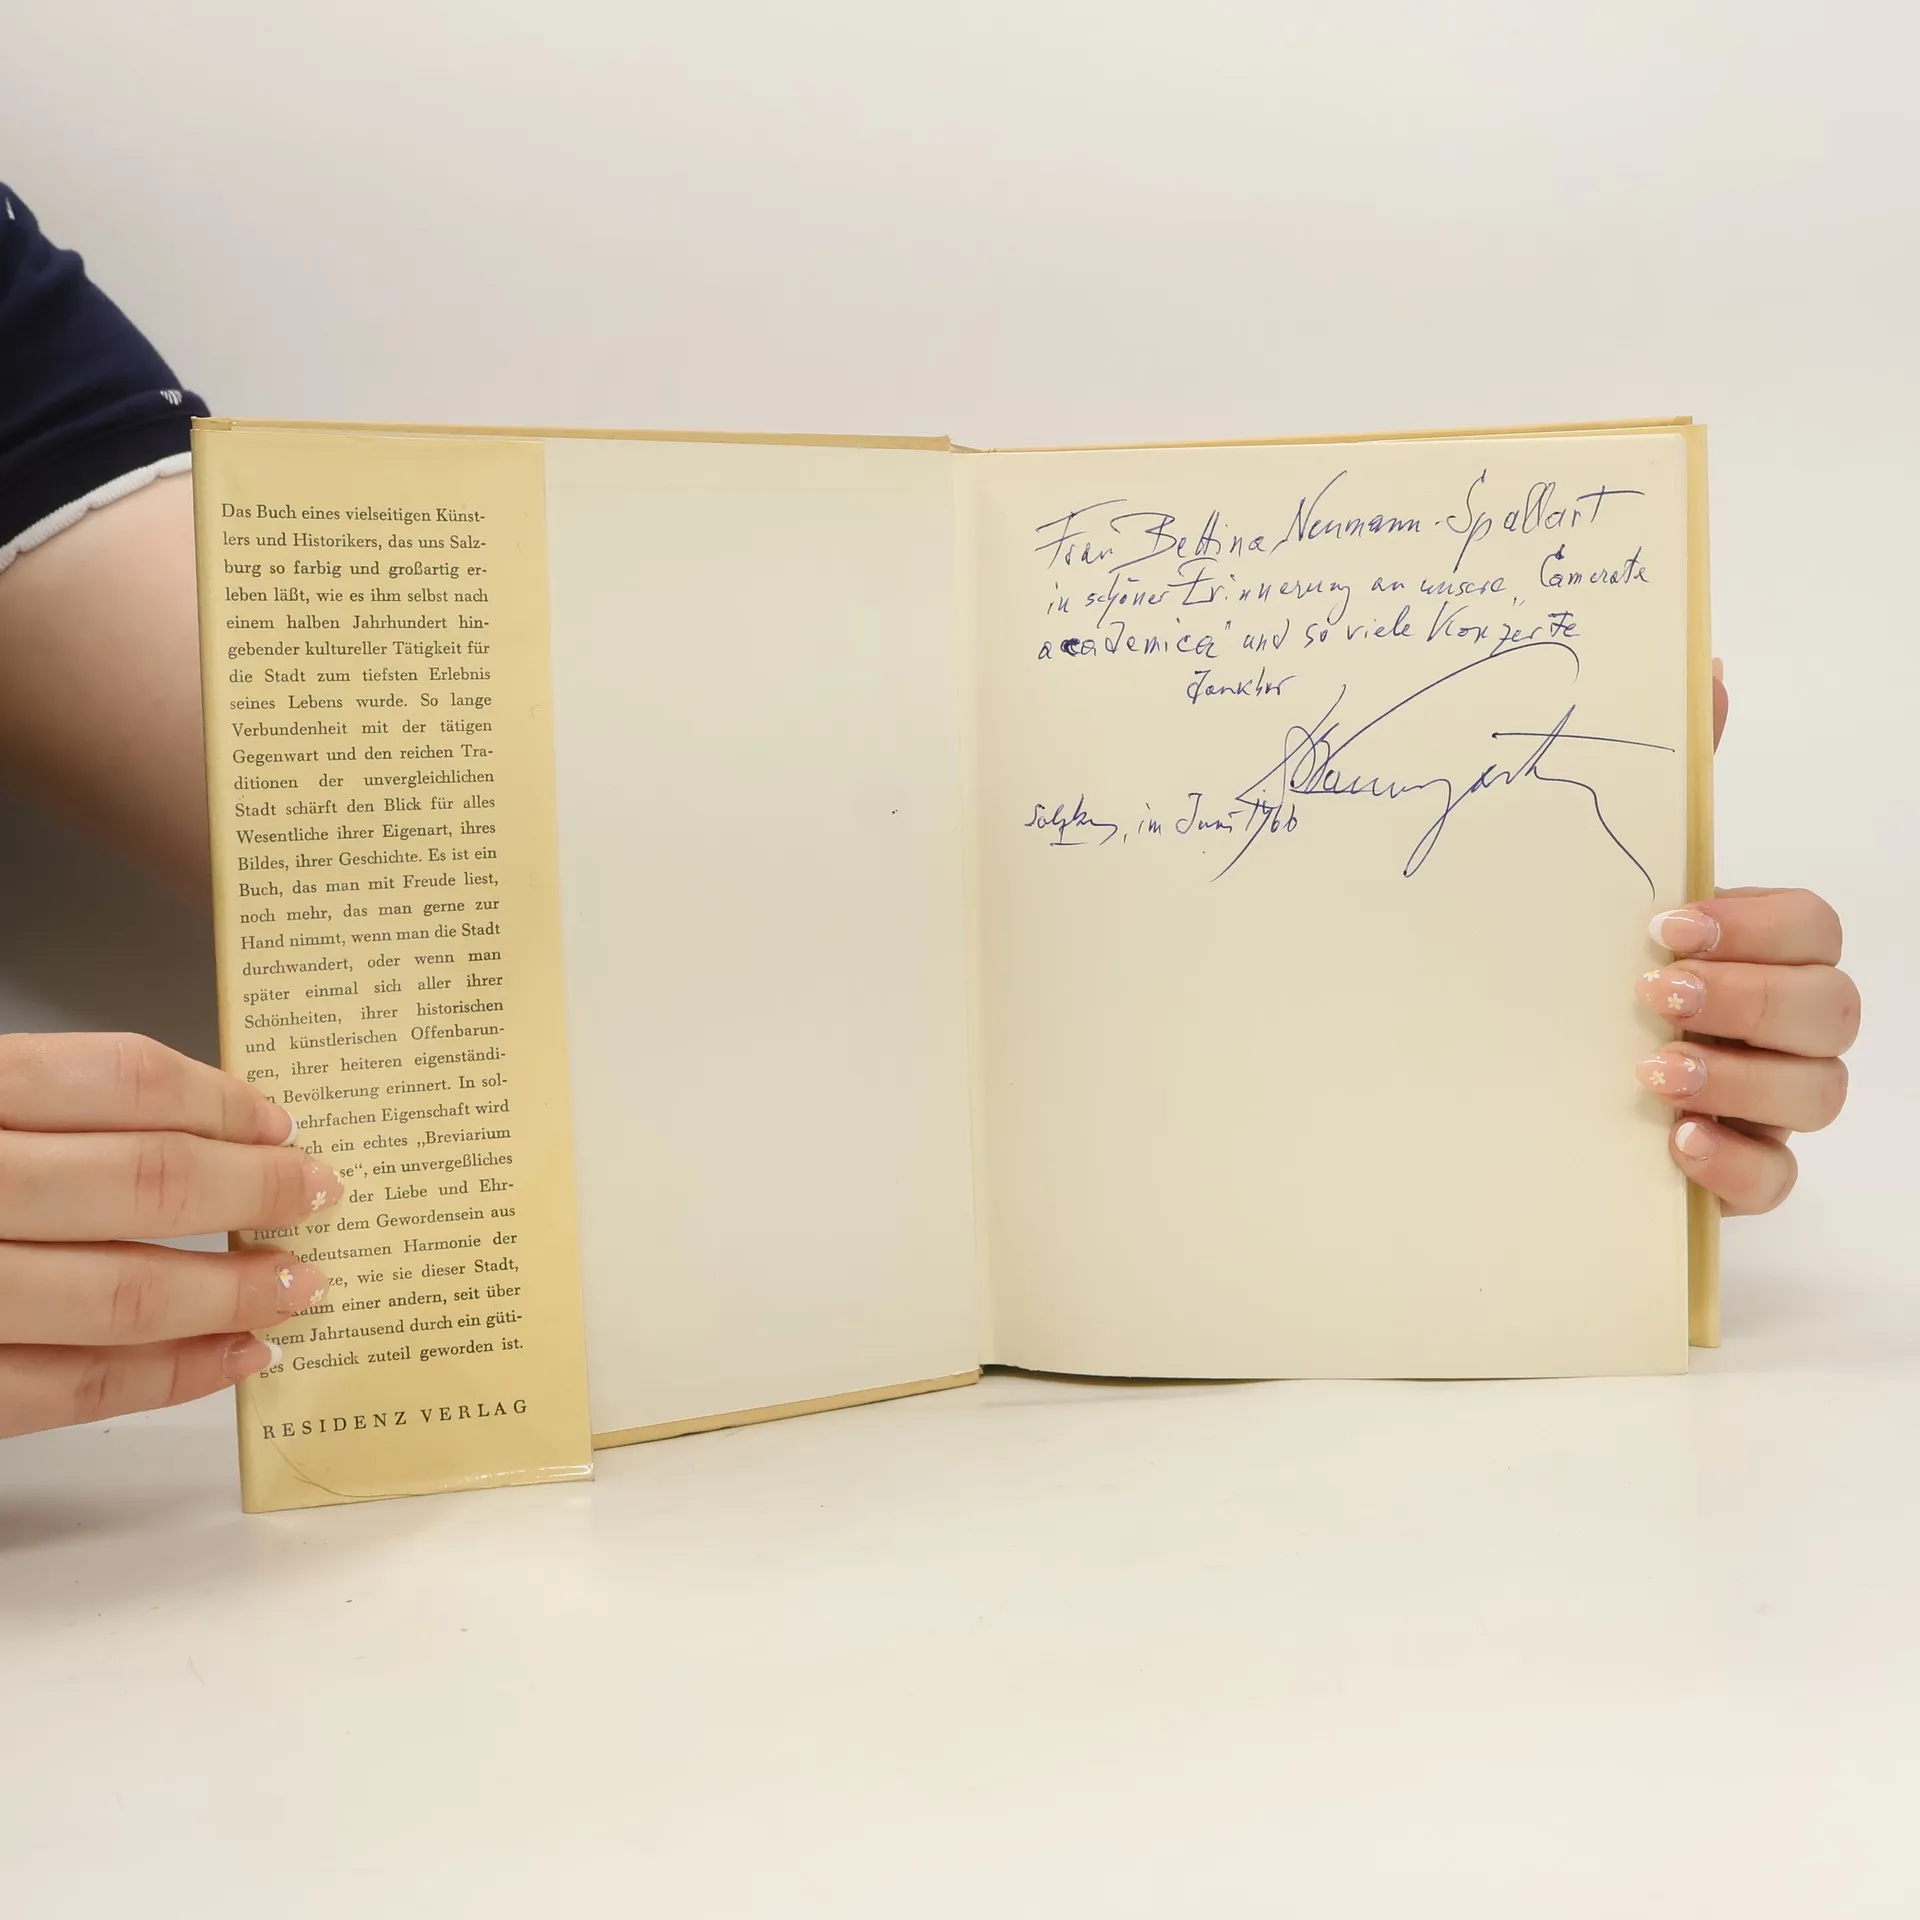 Das Buch eines vielseitigen Künst-
lers und Historikers, das uns Salz-
burg so farbig und großartig er-
leben läßt, wie es ihm selbst nach
einem halben Jahrhundert hin-
gebender kultureller Tätigkeit für
die Stadt zum tiefsten Erlebnis
seines Lebens wurde. So lange
Verbundenheit mit der tätigen
Gegenwart und den reichen Tra-
ditionen der unvergleichlichen
Stadt schärft den Blick für alles
Wesentliche ihrer Eigenart, ihres
Bildes, ihrer Geschichte. Es ist ein
Buch, das man mit Freude liest,
noch mehr, das man gerne zur
Hand nimmt, wenn man die Stadt
durchwandert, oder wenn man
später einmal sich aller ihrer
Schönheiten, ihrer historischen
und künstlerischen Offenbarun-
gen, ihrer heiteren eigenständi-
Bevölkerung erinnert. In sol-
Eigenschaft wird
ein echtes „Breviarium
ein unvergeßliches
der Liebe und Ehr-
furcht vor dem Gewordensein aus
bedeutsamen Harmonie der
wie sie dieser Stadt,
kaum einer andern, seit über
einem Jahrtausend durch ein güti-
ges Geschick zuteil geworden ist.
RESIDENZ VERLAG
Frau Bettina Neumann-Spallart
in schöner Erinnerung an unsere „Camerata
academica" und so viele Konzerte
dankbar
Baumgartn
Salzburg, im Juni 1966